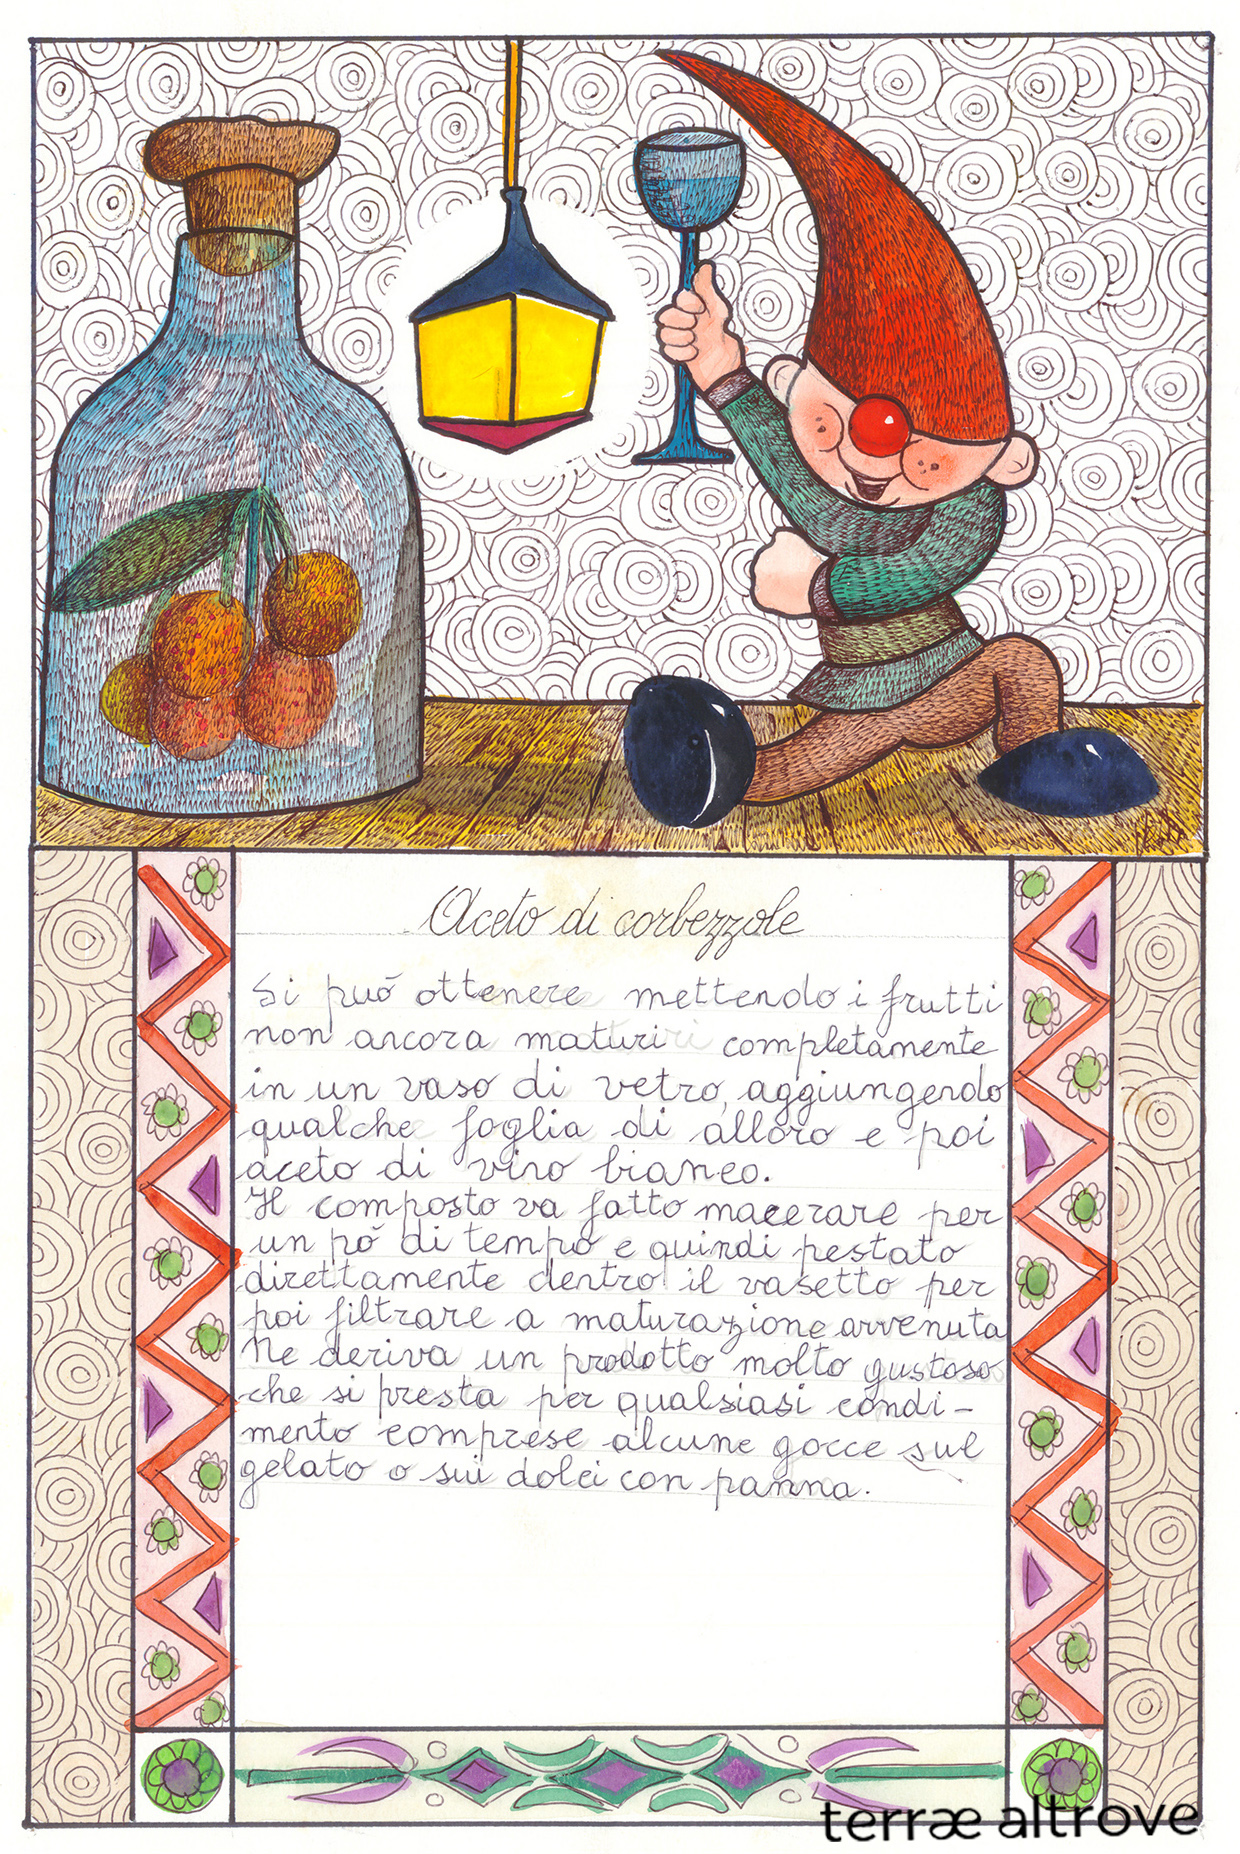 Aceto di corbezzole
Si può ottenere mettendo i frutti
non ancora maturi completamente
in un vaso di vetro, aggiungendo
qualche foglia di alloro e poi
aceto di vino bianco.
Il composto va fatto macerare per
un pò di tempo e quindi pestato
direttamente dentro il vasetto per
poi filtrare a maturazione avvenuta
Ne deriva un prodotto molto gustoso
che si presta per qualsiasi condi-
mento comprese alcune gocce sul
gelato o sui dolci con panna.
terræ altrove